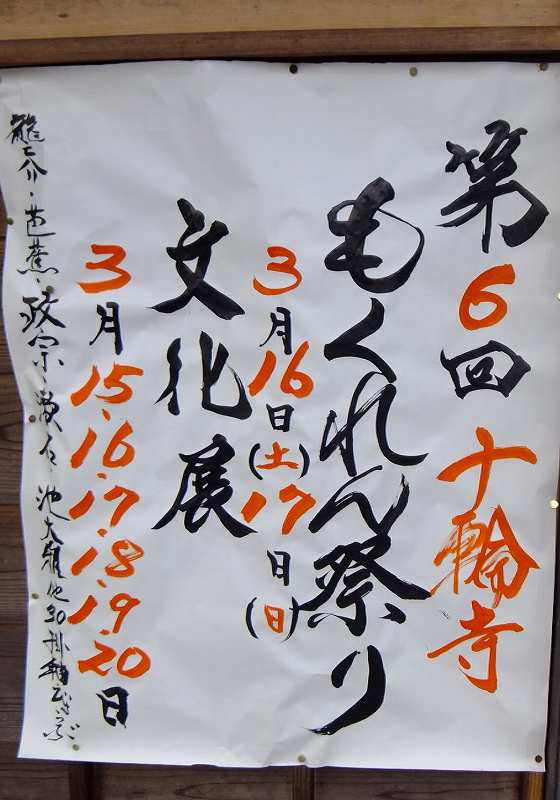 第6回 十輪寺
もくれん祭り
3月16日(土)17日(日)
文化展
3月15、16、17、18、19、20日
龍之介・芭蕉・政宗・漱石 池大雅他30掛軸